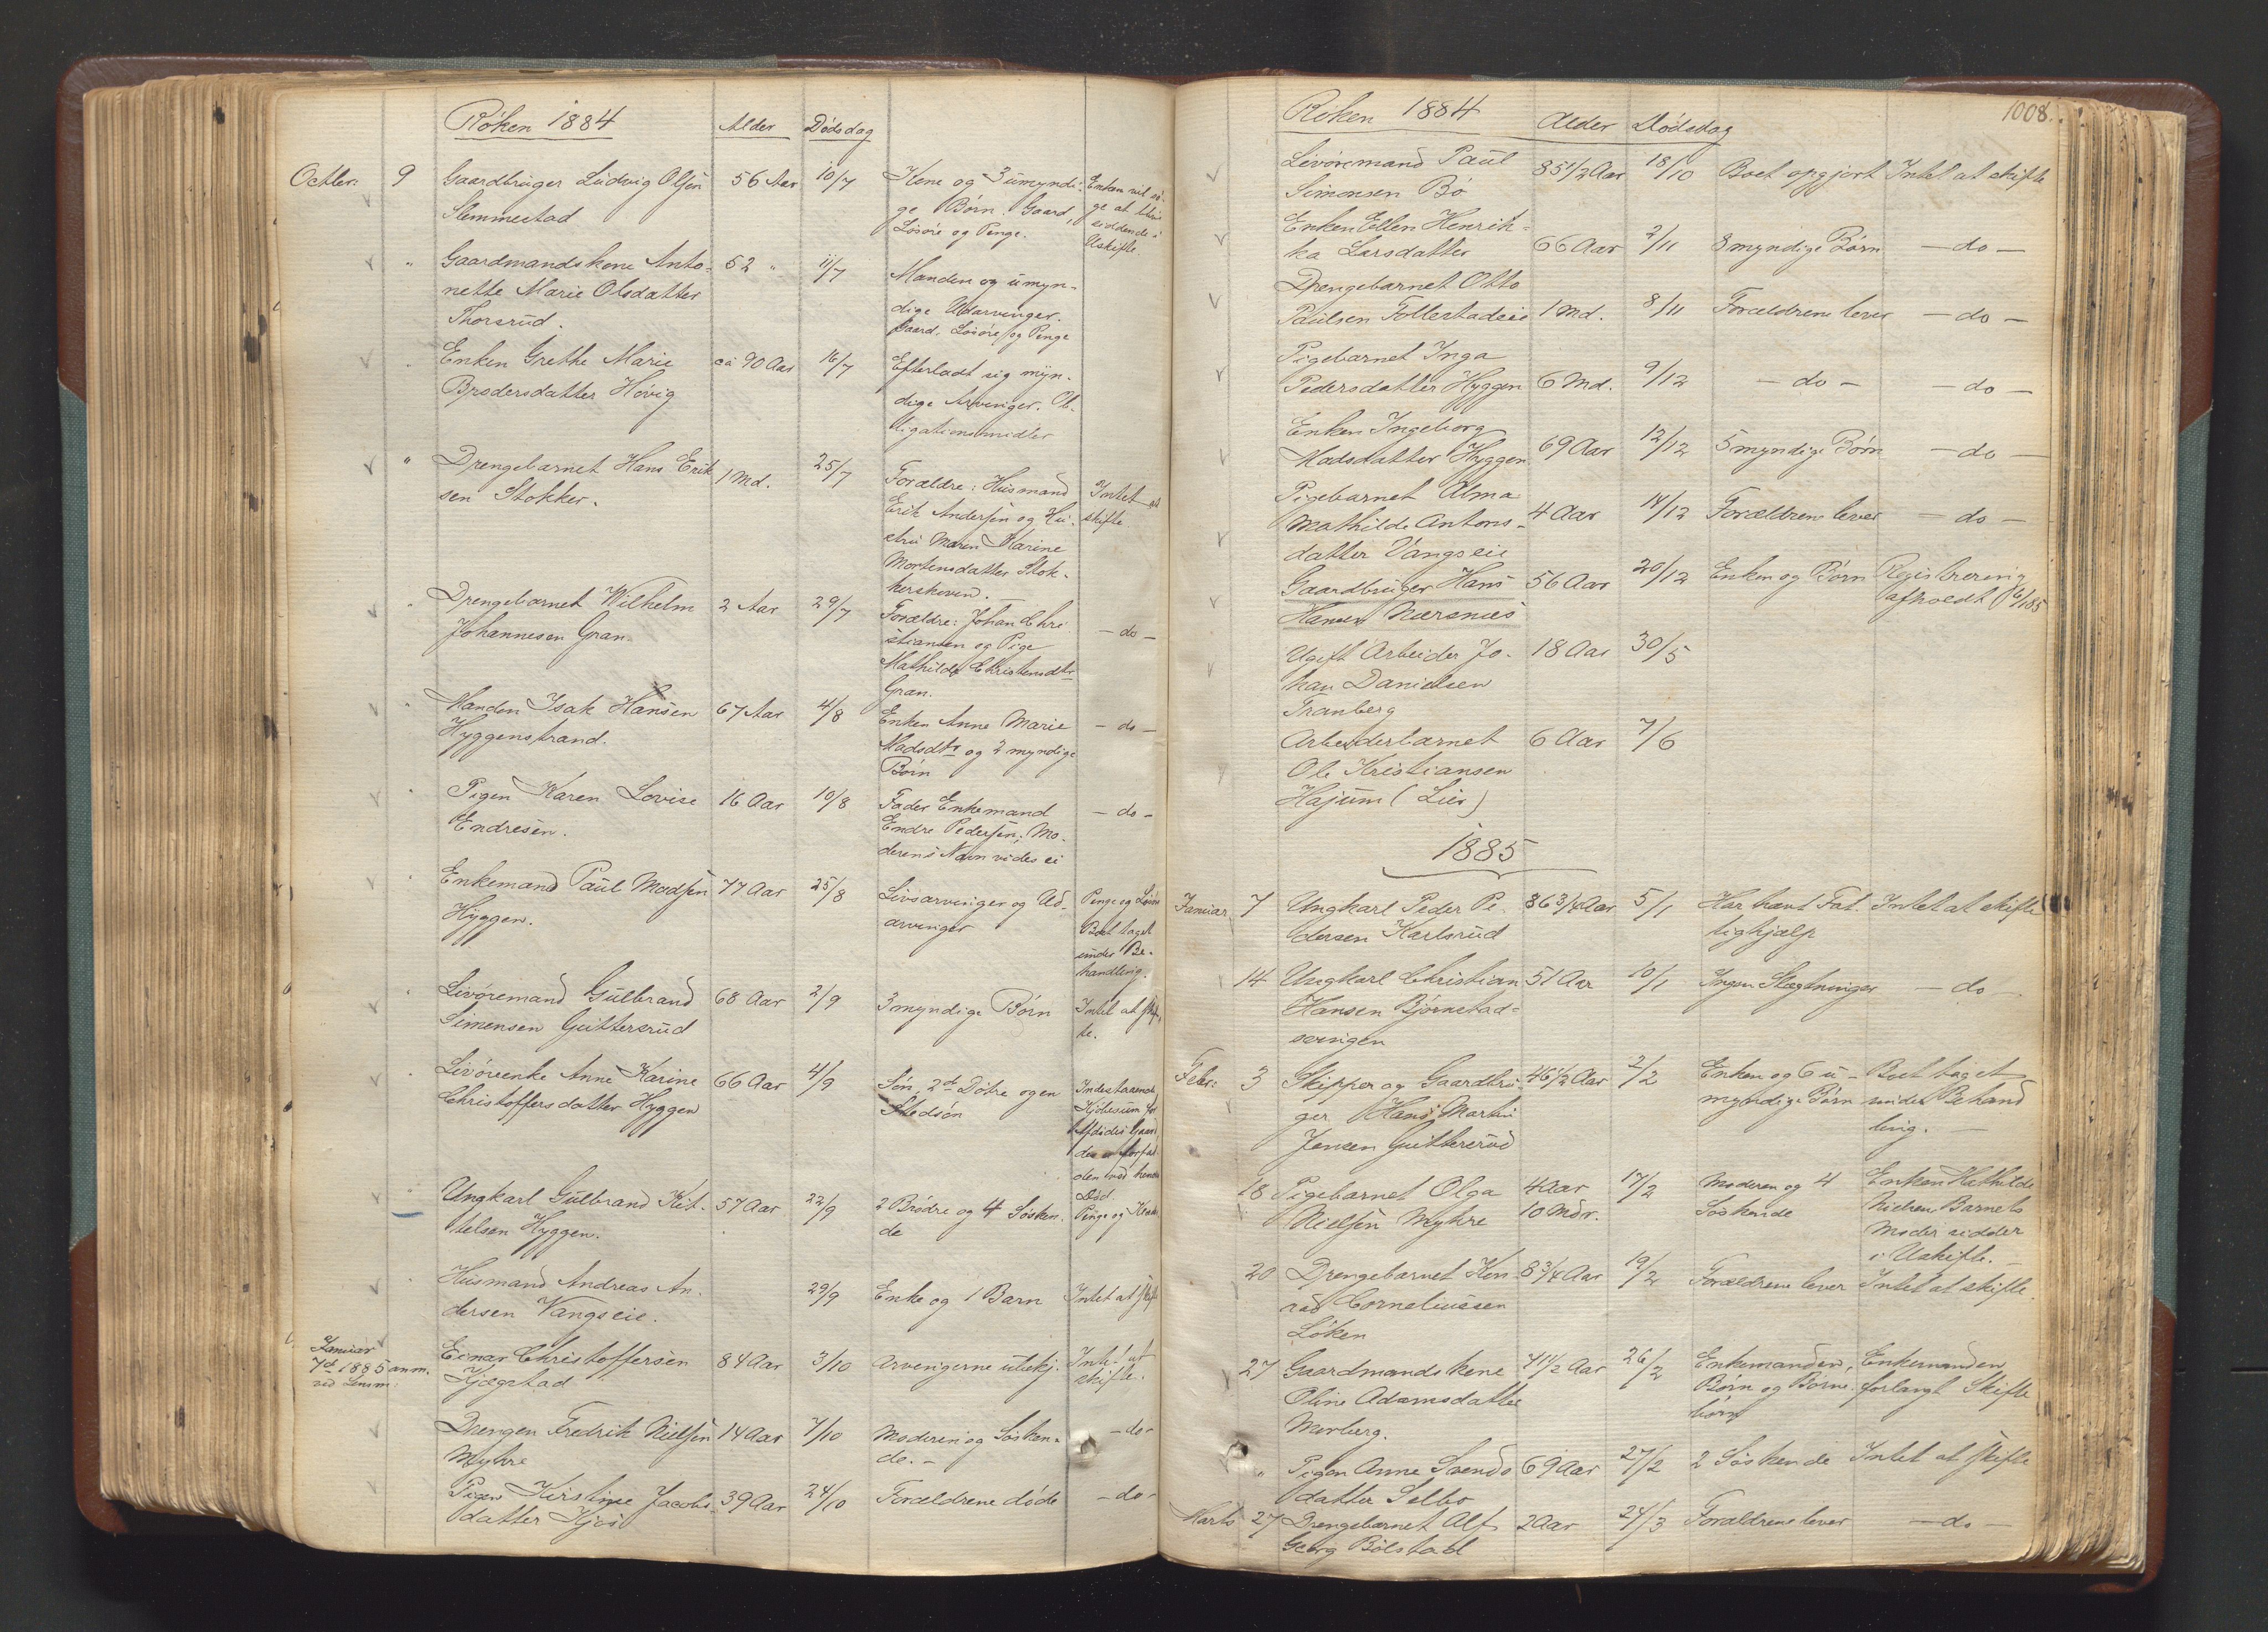 Røken 1884 Alder Dødsdag
Octbr: 9 Gaardbruger Ludvig Olsen 56 Aar 10/7 Kone og 3 umyndi- Enken vil sø-
Slemmestad ge Børn. Gaard, ge at blive
Løsøre og Penge. siddende i
Uskifte
" Gaardmandskone Anto- 52 " 11/7 Manden og umyn-
nette Marie Olsdatter dige Udarvinger.
Thorsrud. Gaard. Løsøre og Penge
Enken Grethe Marie ca 90 Aar 16/7 Efterladt sig myn-
Brodersdatter Høvig dige Arvinger. Ob-
ligationsmidler
" Drengebarnet Hans Erik 1 Md. 25/7 Forældre: Husmand Intet at
sen Stokker. Erik Andersen og Hu- skifte
stru Maren Karine
Mortensdatter Stok-
kerskoven.
" Drengebarnet Wilhelm 2 Aar 29/7 Forældre: Johan Chri
Johannesen Gran stiansen og Pige — do —
Mathilde Christensdtr
Gran.
" Manden Isak Hansen 67 Aar 4/8 Enken Anne Marie — do —
Hyggenstrand. Madsdtr og 2 myndige
Børn
Pigen Karen Lovise 16 Aar 10/8 Fader Enkemand — do —
Endresen. Endre Pedersen; Mo-
derens Navn vides ei
Enkemand Paul Madsen 77 Aar 25/8 Livsarvinger og Ud- Penge og Løsøre
Hyggen. arvinger Boet taget
under Be-
handling.
Livøremand Gulbrand 68 Aar 2/9 3 myndige Børn Intet at skif-
Simensen Guttersrud te.
Livøreenke Anne Karine 66 Aar 4/9 Søn, 2de Døtre og en Indestaaende
Christoffersdatter Hyggen Stedsøn Kjøbesum for
Afdødes Gaard
der er forfal
den ved hendes
Død.
" Ungkarl Gulbrand Kit- 57 Aar 22/9 2 Brødre og 4 Søsken- Penge og
telsen Hyggen. de
Husmand Andreas An- 29/9 Enke og 1 Barn Intet at skifte
dersen Vangseie.
Januar
7de 1885 anm. Einar Christoffersen 84 Aar 3/10 Arvingerne ubekj. Intet at
ved Lensm: Kjægstad skifte.
Drengen Fredrik Nielsen 14 Aar 7/10 Moderen og Søsken- — do —
Myhre de. —
Pigen Kirstine Jacobs- 39 Aar 24/10 Forældrene døde — do —
datter Kjos
1008.
Røken 1884 Alder Dødsdag
Livøremand Paul 85 1/2 Aar 18/10 Boet opgjort Intet at skifte
Simensen Bø
Enken Ellen Henrik-
ka Larsdatter 66 Aar 2/11 3 myndige Børn — do —
Drengebarnet Otto
Paulsen Follestadeie 1 Md. 8/11 Forældrene lever — do —
Pigebarnet Inga
Pedersdatter Hyggen 6 Md. 9/12 — do — — do —
Enken Ingeborg
Madsdatter Hyggen 69 Aar 12/12 5 myndige Børn — do —
Pigebarnet Alma
Mathilde Antons- 4 Aar 14/12 Forældrene lever — do —
datter Vangseie
Gaardbruger Hans 56 Aar 20/12 Enken og Børn Registrering
Hansen Nærsnæs afholdt 16/1 85
Ugift Arbeider Jo- 18 Aar 30/5
han Danielsen
Tranberg
Arbeiderbarnet 6 Aar 7/6
Ole Kristiansen
Hajum (Lier)
1885
Januar 7 Ungkarl Peder Pe- 86 3/4 Aar 5/1 Har havt Fat- Intet at skifte
dersen Karlsrud tighjælp
14 Ungkarl Christian 51 Aar 10/1 Ingen Slægtninger — do —
Hansen Bjørnstad-
svingen
Febr: 3 Skipper og Gaardbru- 46 1/2 Aar 2/2 Enken og 6 u- Boet taget
ger Hans Martin myndige Børn under Behand
Jensen Guttersrud ling. —
18 Pigebarnet Olga 4 Aar 17/2 Moderen og 4 Enken Mathilde
Nielsen Myhre 10 Mdr. Søskende Nielsen Barnets
Moder sidder
i Uskifte. —
20 Drengebarnet Kon- 8 3/4 Aar 19/2 Forældrene lever Intet at skifte.
rad Corneliussen
Løken
27 Gaardmandskone 41 1/2 Aar 26/2 Enkemanden, Enkemanden
Oline Adamsdatter Børn og Børne- forlangt Skifte
Morberg. børn
" Pigen Anne Svends 69 Aar 27/2 2 Søskende Intet at skifte
datter Selbo
Marts 27 Drengebarnet Alf 2 Aar 24/3 Forældrene lever — do —
Georg Bølstad